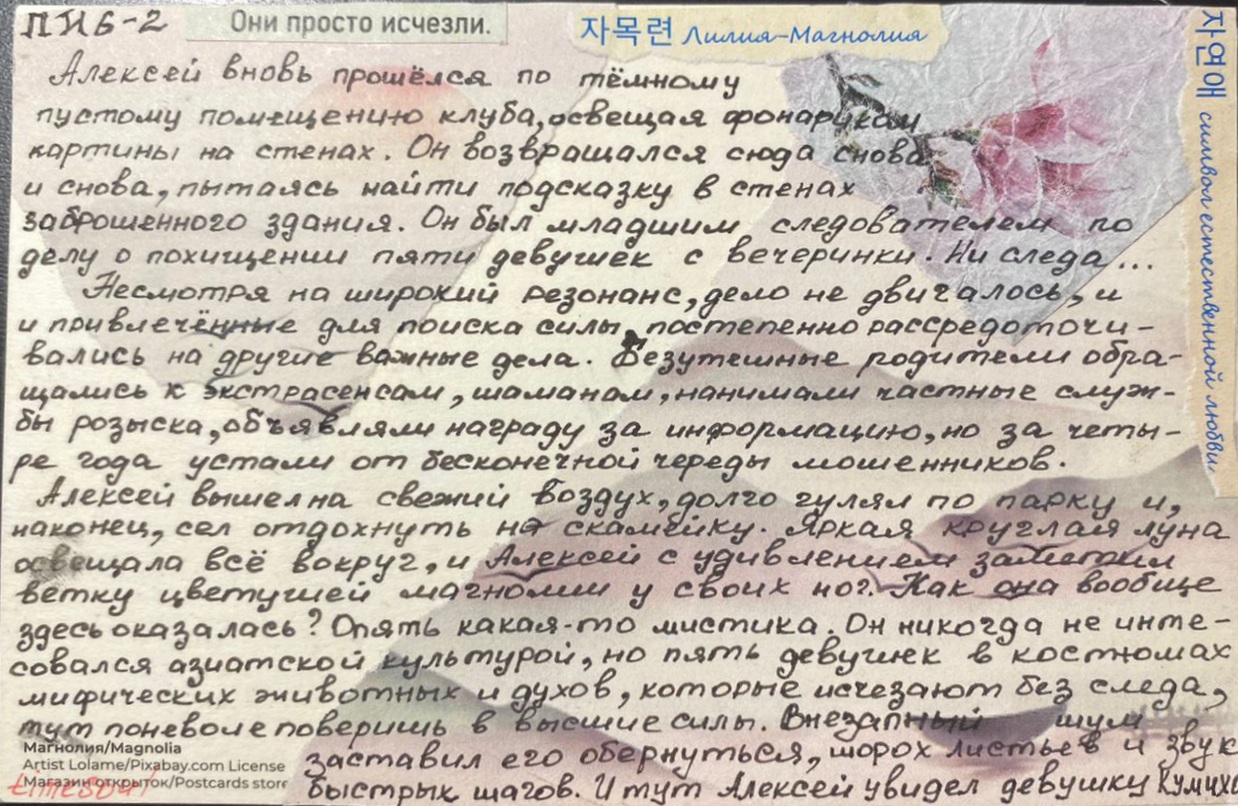 ПИБ-2
Они просто исчезли.
자목련 Лилия-Магнолия
자연애 символ естественной любви.
Алексей вновь прошёлся по тёмному
пустому помещению клуба, освещая фонариком
картины на стенах. Он возвращался сюда снова
и снова, пытаясь найти подсказку в стенах
заброшенного здания. Он был младшим следователем по
делу о похищении пяти девушек с вечеринки. Ни следа...
Несмотря на широкий резонанс, дело не двигалось, и
и привлечённые для поиска силы, постепенно рассредоточи-
вались на другие важные дела. Безутешные родители обра-
щались к экстрасенсам, шаманам, нанимали частные служ-
бы розыска, объявляли награду за информацию, но за четы-
ре года устали от бесконечной череды мошенников.
Алексей вышел на свежий воздух, долго гулял по парку и,
наконец, сел отдохнуть на скамейку. Яркая круглая луна
освещала всё вокруг, и Алексей с удивлением заметил
ветку цветущей магнолии у своих ног. Как она вообще
здесь оказалась? Опять какая-то мистика. Он никогда не инте-
совался азиатской культурой, но пять девушек в костюмах
мифических животных и духов, которые исчезают без следа,
тут поневоле поверишь в высшие силы. Внезапный шум
заставил его обернуться, шорох листьев и звук
быстрых шагов. И тут Алексей увидел девушку Кумихо
Магнолия/Magnolia
Artist Lolame/Pixabay.com License
Магазин открыток/Postcards store